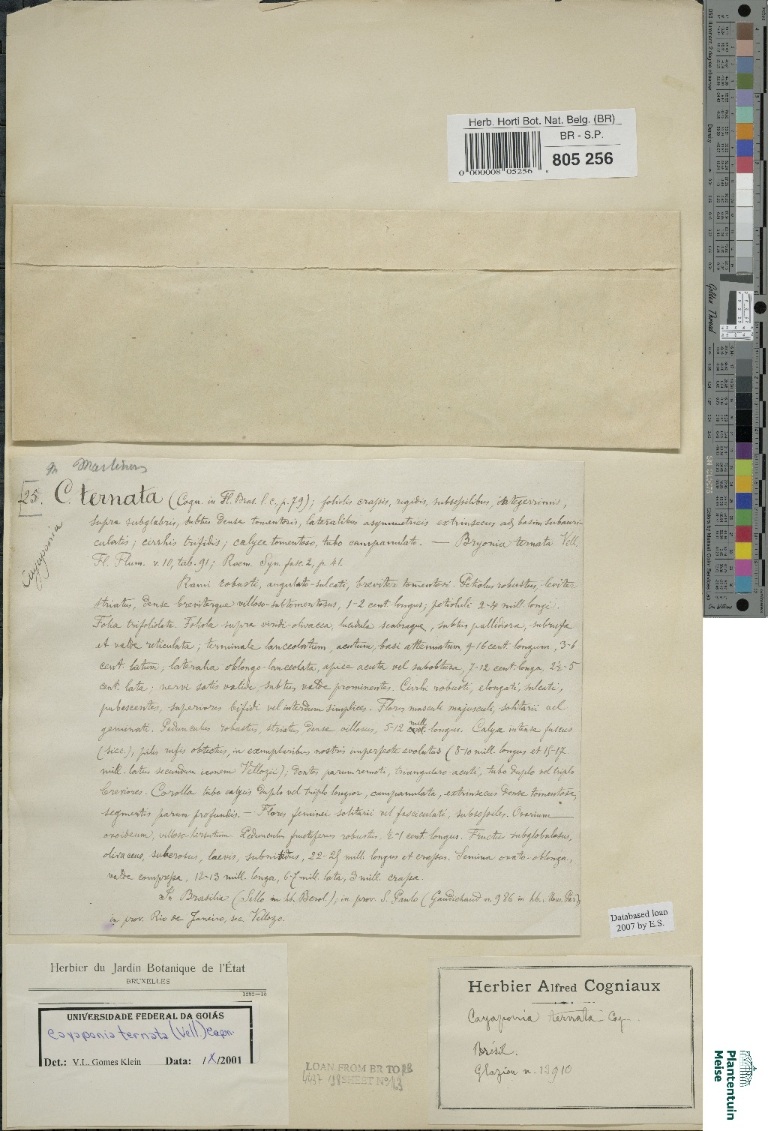 Herb. Horti Bot. Nat. Belg. (BR)
BR - S.P.
805 256
0 000008 05256
In Martinus
25. C. ternata (Cogn. in Fl. Bras. l. c. p. 79); foliolis crassis, rigidis, subsessilibus, integerrimis,
supra subglabris, subtus dense tomentosis, lateralibus asymmetricis extrinsecus ad basim subauri-
culatis; cirrhis trifidis; calyce tomentoso, tubo campanulato. — Bryonia ternata Vell.
Fl. Flum. v. 10, tab. 91; Roem. Syn. fasc. 2, p. 41.
Cayaponia
Rami robusti, angulato-sulcati, breviter tomentosi. Petiolus robustus, leviter
striatus, dense breviterque villoso-subtomentosus, 1-2 cent. longus; petioluli 2-4 mill. longi.
Folia trifoliolata. Foliola supra viridi-olivacea, lucidula scabraque, subtus pallidiora, subrufa
et valde reticulata; terminale lanceolatum, acutum, basi attenuatum, 9-16 cent. longum, 3-6
cent. latum; lateralia oblongo-lanceolata, apice acuta vel subobtusa, 7-12 cent. longa, 2½-5
cent. lata; nervi satis validi, subtus valde prominentes. Cirrhi robusti, elongati, sulcati,
pubescentes, superiores bifidi vel interdum simplices. Flores masculi majusculi, solitarii vel
geminati. Pedunculus robustus, striatus, dense villosus, 5-12 mill. longus. Calyx intense fuscus
(sicc.), pilis rufis obtectus, in exemplaribus nostris imperfecte evolutus (8-10 mill. longus et 15-17
mill. latus secundum iconem Vellozii); dentes parum remoti, triangulares acuti, tubo duplo vel triplo
breviores. Corolla tubo calycis duplo vel triplo longior, campanulata, extrinsecus dense tomentosa,
segmentis parum profundis. — Flores feminei solitarii vel fasciculati, subsessiles. Ovarium
ovoideum, villoso-hirsutum. Pedunculus fructiferus robustus, ½-1 cent. longus. Fructus subglobulosus,
olivaceus, suberosus, laevis, subnitidus, 22-25 mill. longus et crassus. Semina ovato-oblonga,
valde compressa, 12-13 mill. longa, 6-7 mill. lata, 3 mill. crassa.
In Brasilia (Sello in hb. Berol.); in prov. S. Paulo (Gaudichaud n. 986 in hb. Mus. Par.);
in prov. Rio de Janeiro, sec. Vellozo.
Databased loan
2007 by E.S.
Herbier du Jardin Botanique de l'État
BRUXELLES
UNIVERSIDADE FEDERAL DA GOIÁS
Cayaponia ternata (Vell.) Cogn.
Det.: V.L. Gomes Klein Data: IX/2001
LOAN FROM BR TO
SHEET No
Herbier Alfred Cogniaux
Cayaponia ternata Cogn.
Brésil.
Glaziou n. 13910
Plantentuin
Meise